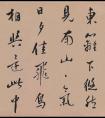 東籬下悠然
見南山〻氣
日夕佳飛鳥
相與還此中